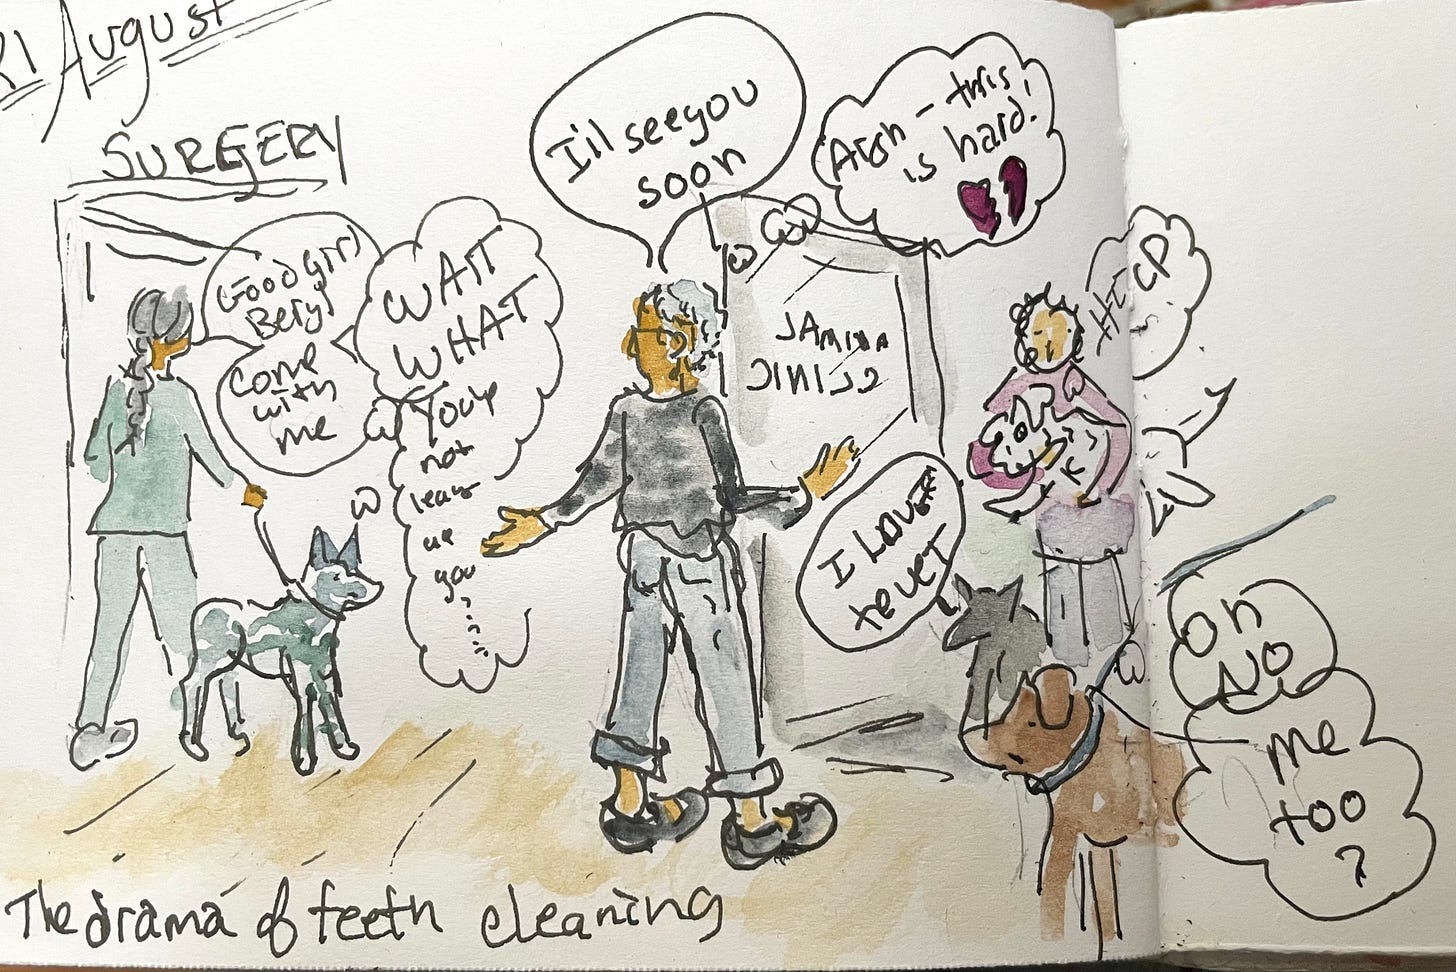 21 August
SURGERY
Good girl
Beryl
come
with
me
WAIT
WHAT
Your
not
us
you.....
I'll see you
soon
Argh – this
is hard!
LAMINA
CINILC
HELP
I LOVE
te VET
Oh
NO
me
too
?
The drama of teeth cleaning